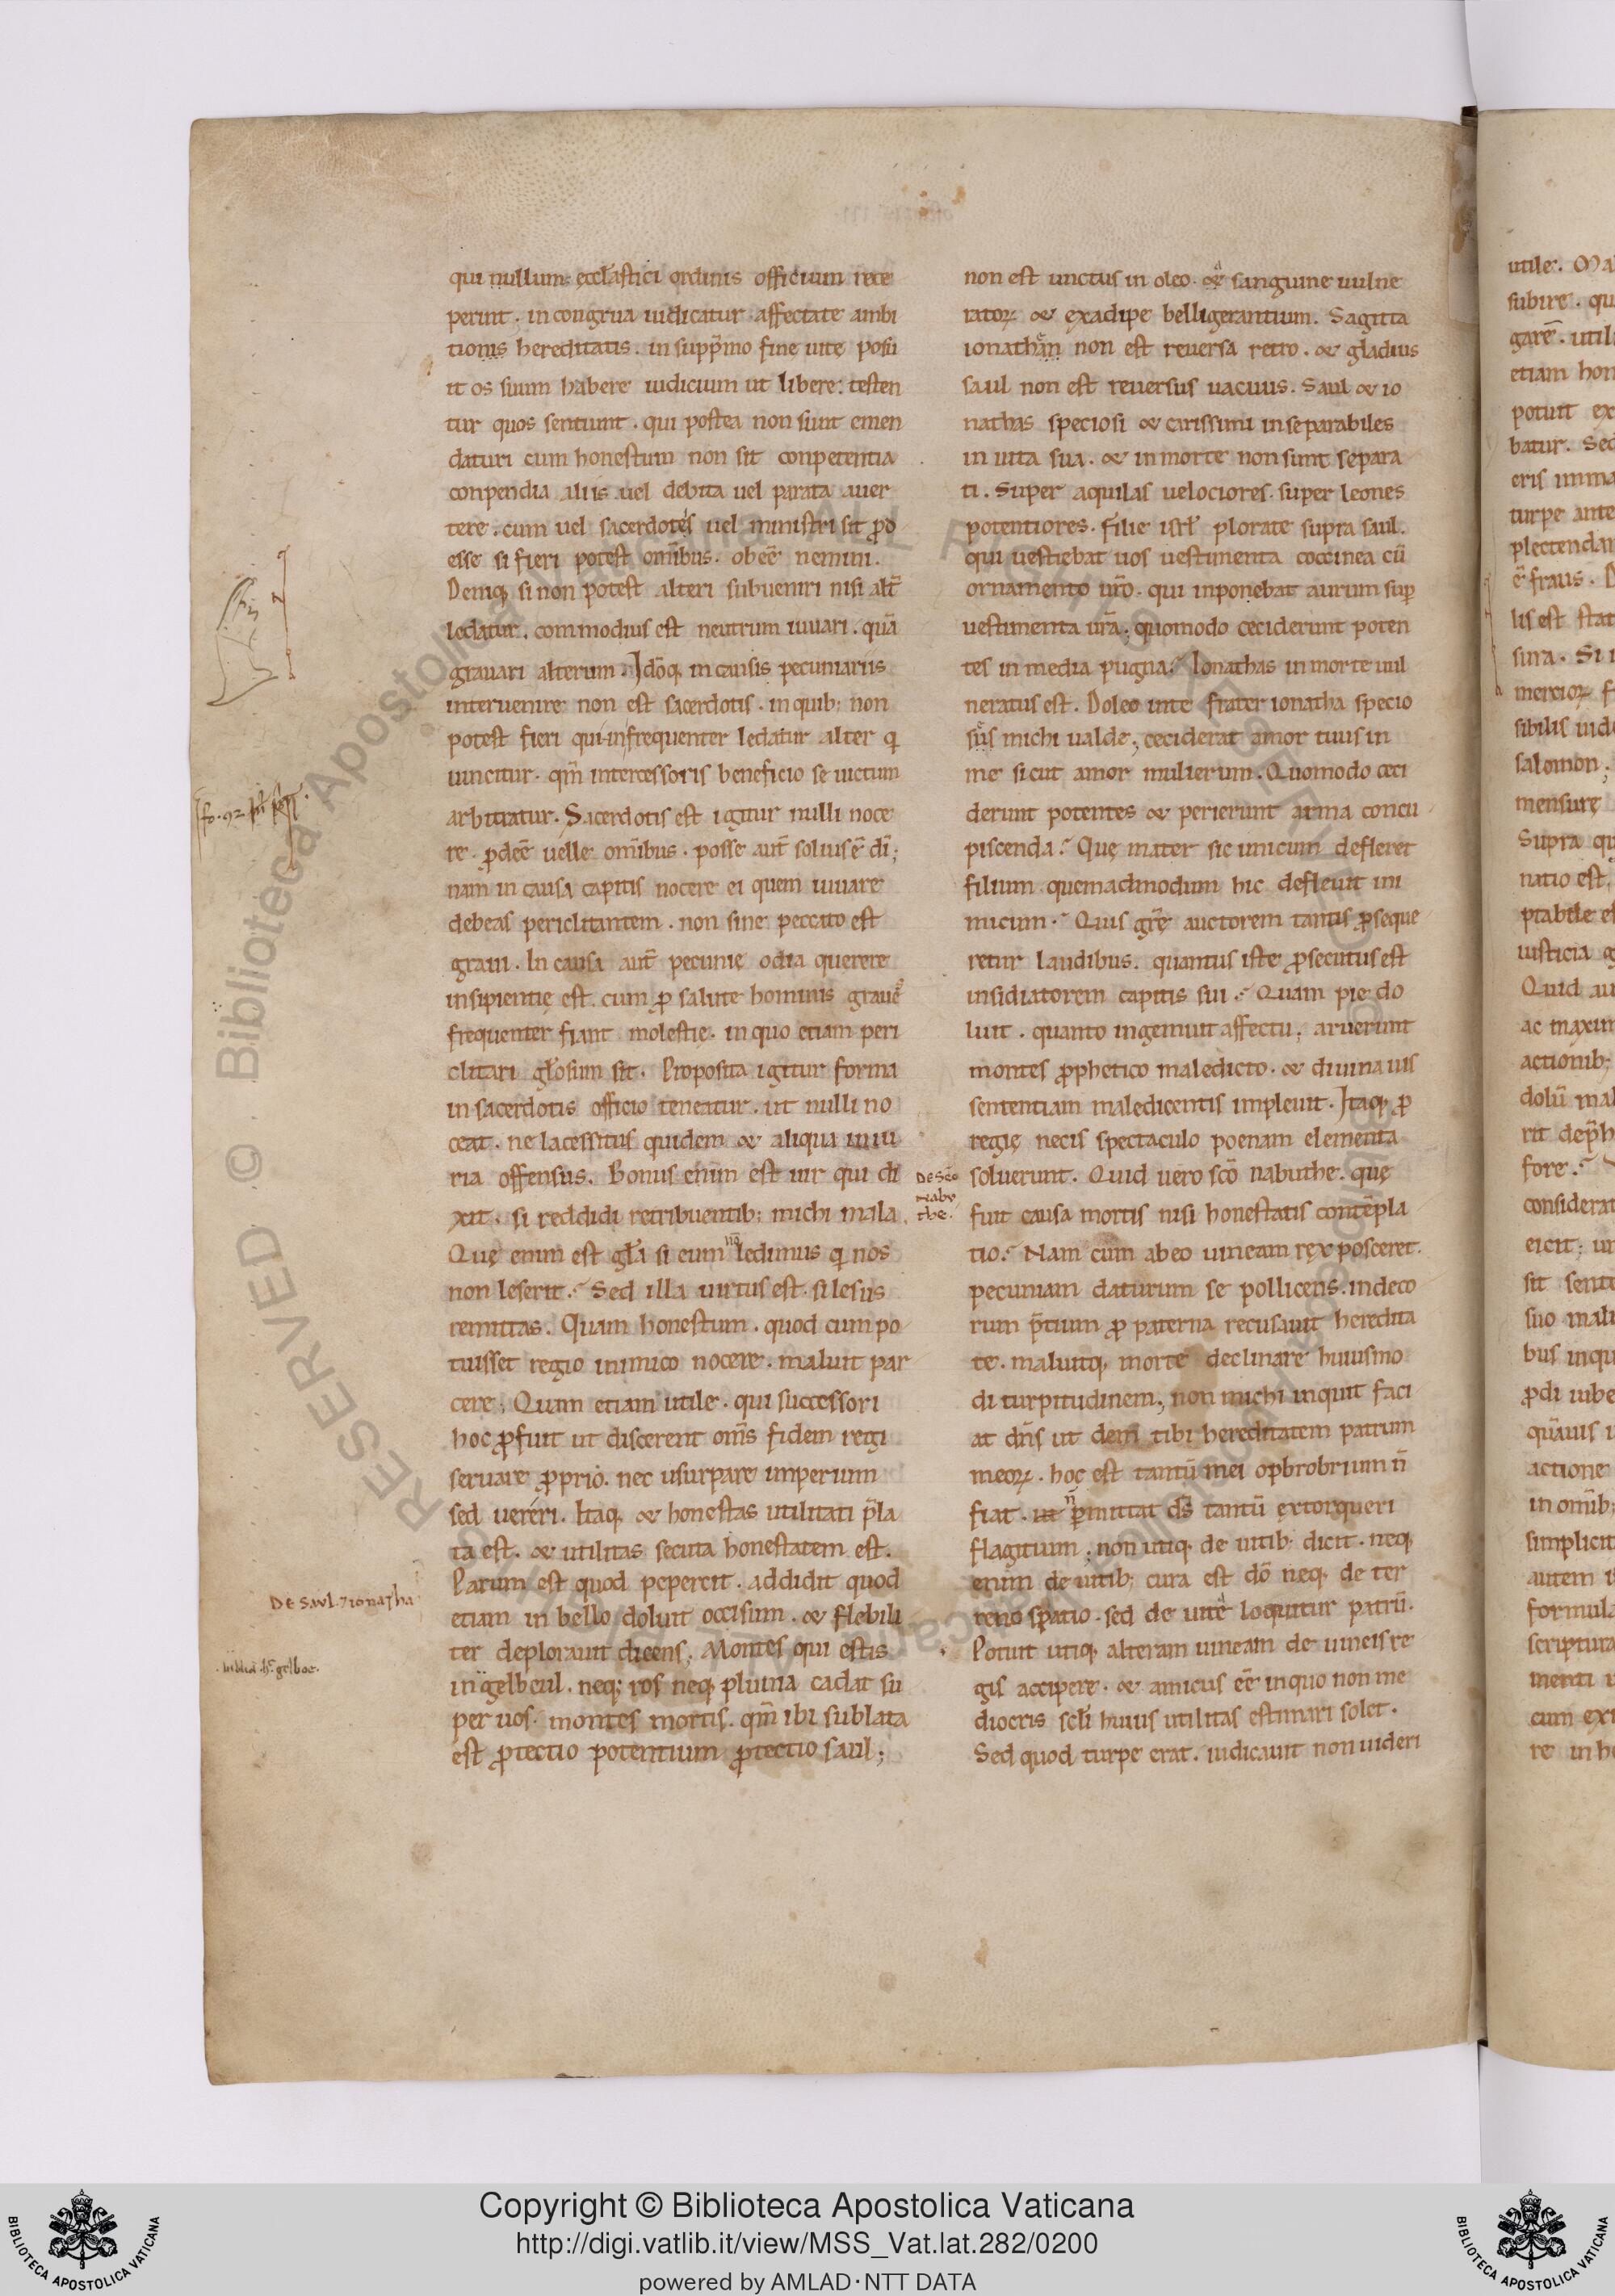 qui nullum ecclãstici ordinis officium rece
perint. in congrua iudicatur affectate ambi
tionis hereditatis. in supp̃mo fine uitę posu
it os suum habere iudicium ut libere testen
tur quos sentiunt. qui postea non sunt emen
daturi cum honestum non sit conpetentia
conpendia aliis uel debita uel parata auer
tere. cum uel sacerdotes uel ministri sit ꝓd
esse si fieri potest om̃ibus. obeẽ nemini.
Deniq; si non potest alteri subueniri nisi alt̃
ledatur. commodius est neutrum iuuari. quã
grauari alterum. Idõq; in causis pecuniariis
interuenire non est sacerdotis. in quib; non
potest fieri qui infrequenter ledatur alter q
uincitur. qm̃ intercessoris beneficio se uictum
arbitratur. Sacerdotis est igitur nulli noce
re. ꝓdeẽ uelle om̃ibus. posse aut̃ solius ẽ dĩ;
nam in causa capitis nocere ei quem iuuare
debeas periclitantem. non sine peccato est
graui. In causa aut̃ pecunię odia querere
insipientię est. cum ꝓ salute hominis graues
frequenter fiant molestie. in quo etiam peri
clitari gl̃osum sit. Proposita igitur forma
in sacerdotis officio teneatur. ut nulli no
ceat. ne lacessitus quidem & aliqua iniu
ria offensus. Bonus enim est uir qui di
xit. si reddidi retribuentib; michi mala.
Quę enim est gl̃a si eum nõ ledimus q nos
non leserit? Sed illa uirtus est. si lesus
remittas. Quam honestum. quod cum po
tuisset regio inimico nocere. maluit par
cere; Quam etiam utile. qui successori
hoc ꝓfuit ut discerent om̃s fidem regi
seruare ꝓprio. nec usurpare imperium
sed uereri. Itaq; & honestas utilitati p̃la
ta est. & utilitas secuta honestatem est.
Parum est quod pepercit. addidit quod
De Saul. 7 ionatha
etiam in bello doluit occisum. & flebili
ter deplorauit dicens; Montes qui estis
in gelboul. neq; ros neq; pluuia cadat su
per uos. montes mortis. qm̃ ibi sublata
est ꝓtectio potentium ꝓtectio saul;
non est unctus in oleo. & a sanguine uulne
ratoꝝ & ex adipe belligerantium. Sagitta
ionathan non est reuersa retro. & gladius
saul non est reuersus uacuus. Saul & io
nathas speciosi & carissimi inseparabiles
in uita sua. & in morte non sunt separa
ti. Super aquilas uelociores. super leones
potentiores. filie isrl̃ plorate supra saul.
qui uestiebat uos uestimenta coccinea cũ
ornamento ur̃o. qui inponebat aurum suꝑ
uestimenta ur̃a; quomodo ceciderunt poten
tes in media pugna? Ionathas in morte uul
neratus est. Doleo in te frater ionatha specio
sus michi ualde; ceciderat amor tuus in
me sicut amor mulierum. Quomodo ceci
derunt potentes & perierunt arma concu
piscenda? Quę mater sic unicum defleret
filium quemadmodum hic defleuit ini
micum? Quis gr̃ę auctorem tantis ꝓseque
retur laudibus. quantus iste ꝓsecutus est
insidiatorem capitis sui? Quam pie do
luit. quanto ingemuit affectu; aruerunt
montes ꝓphetico maledicto. & diuina uis
sententiam maledicentis impleuit. Itaq; ꝓ
regię necis spectaculo poenam elementa
De Sc̃o
Nabu
the.
soluerunt. Quid uero sc̃o nabuthe. quę
fuit causa mortis nisi honestatis contẽpla
tio? Nam cum ab eo uineam rex posceret.
pecuniam daturum se pollicens. indeco
rum p̃tium ꝓ paterna recusauit heredita
te. maluitq; morte declinare huiusmo
di turpitudinem; non michi inquit faci
at dñs ut dem tibi hereditatem patrum
meoꝝ. hoc est tantũ mei opbrobrium ñ
fiat. ñ ꝑmittat ds̃ tantũ extorqueri
flagitium; non utiq; de uitib; dicit. neq;
enim de uitib; cura est dõ neq; de ter
reno spatio. sed de uite loquitur patrũ.
Potuit utiq; alteram uineam de uineis re
gis accipere. & amicus eẽ in quo non me
diocris scl̃i huius utilitas estimari solet.
Sed quod turpe erat. iudicauit non uideri
Copyright © Biblioteca Apostolica Vaticana
http://digi.vatlib.it/view/MSS_Vat.lat.282/0200
powered by AMLAD·NTT DATA
BIBLIOTECA APOSTOLICA VATICANA
BIBLIOTECA APOSTOLICA VATICANA